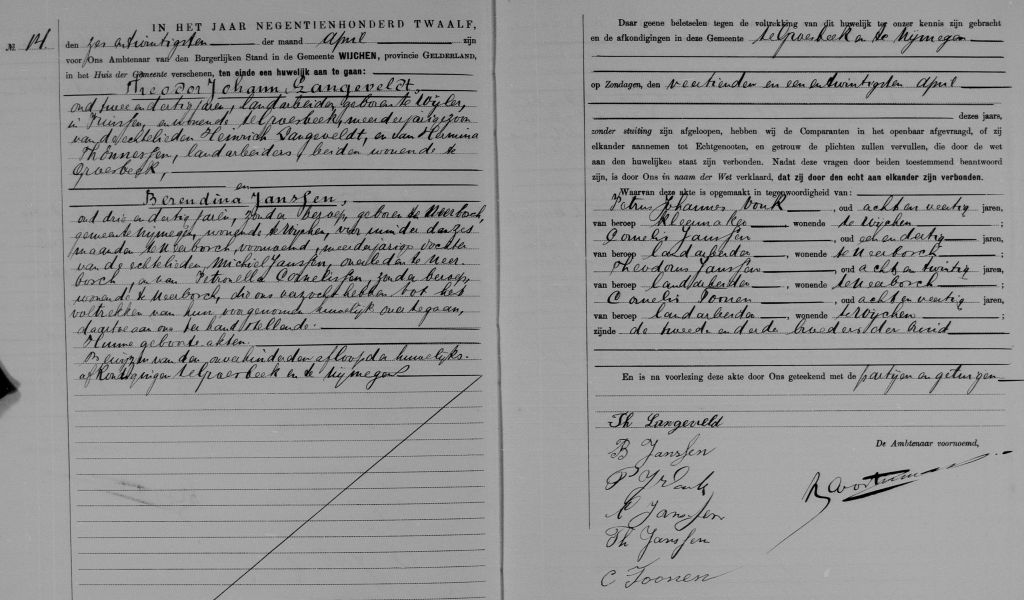 № 14.
IN HET JAAR NEGENTIENHONDERD TWAALF,
den zes en twintigsten der maand April zijn
voor Ons Ambtenaar van den Burgerlijken Stand in de Gemeente WIJCHEN, provincie GELDERLAND,
in het Huis der Gemeente verschenen, ten einde een huwelijk aan te gaan:
Theodor Johann Langeveldt,
oud twee en dertig jaren, landarbeider, geboren te Wyler,
in Pruissen, en wonende te Groesbeek, meerderjarige zoon
van de echtelieden Heinrich Langeveldt, en van Hermina
Thönnessen, landarbeiders, beiden wonende te
Groesbeek,
en
Berendina Janssen,
oud drie en dertig jaren, zonder beroep, geboren te Neerbosch,
gemeente Nijmegen, wonende te Wijchen, voor minder dan zes
maanden te Neerbosch, voornoemd, meerderjarige dochter
van de echtelieden Michiel Janssen, overleden te Neer-
bosch, en van Petronella Cornelissen, zonder beroep,
wonende te Neerbosch, die ons verzocht hebben tot het
voltrekken van hun voorgenomen huwelijk over te gaan,
daartoe aan ons ter hand stellende:
Hunne geboorte akten.
Bewijzen van den onverhinderden afloop der huwelijks-
afkondigingen te Groesbeek en te Nijmegen
Daar geene beletselen tegen de voltrekking van dit huwelijk te onzer kennis zijn gebracht
en de afkondigingen in deze Gemeente te Groesbeek en te Nijmegen
op Zondagen, den veertienden en een en twintigsten April
dezes jaars,
zonder stuiting zijn afgeloopen, hebben wij de Comparanten in het openbaar afgevraagd, of zij
elkander aannemen tot Echtgenooten, en getrouw de plichten zullen vervullen, die door de wet
aan den huwelijken staat zijn verbonden. Nadat deze vragen door beiden toestemmend beantwoord
zijn, is door Ons in naam der Wet verklaard, dat zij door den echt aan elkander zijn verbonden.
Waarvan deze akte is opgemaakt in tegenwoordigheid van:
Petrus Johannes Vonk, oud acht en veertig jaren,
van beroep kleermaker, wonende te Wijchen;
Cornelis Janssen, oud een en dertig jaren,
van beroep landarbeider, wonende te Neerbosch;
Theodorus Janssen, oud acht en twintig jaren,
van beroep landarbeider, wonende te Neerbosch;
Cornelis Toonen, oud acht en veertig jaren,
van beroep landarbeider, wonende te Wijchen;
zijnde de tweede en derde broeders der bruid
En is na voorlezing deze akte door Ons geteekend met de partijen en getuigen
Th Langeveld
De Ambtenaar voornoemd,
B Janssen
P J Vonk
C Janssen
Th Janssen
C Toonen